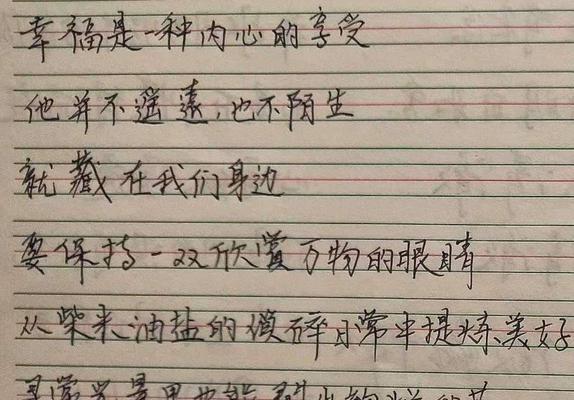 幸福是一种内心的享受
他并不遥远，也不陌生
就藏在我们身边
要保持一双欣赏万物的眼睛
从柴米油盐的琐碎日常中提炼美好